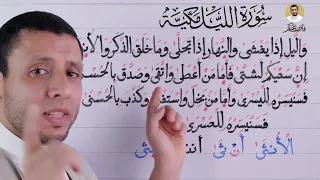 سورة الليل مكية
واليل إذا يغشى والنهار إذا تجلى وما خلق الذكر والأنثى
إن سعيكم لشتى فأما من أعطى واتقى وصدق بالحسنى
فسنيسره لليسرى وأما من بخل واستغنى وكذب بالحسنى
فسنيسره للعسرى
الأنثى أن ثى أنثى